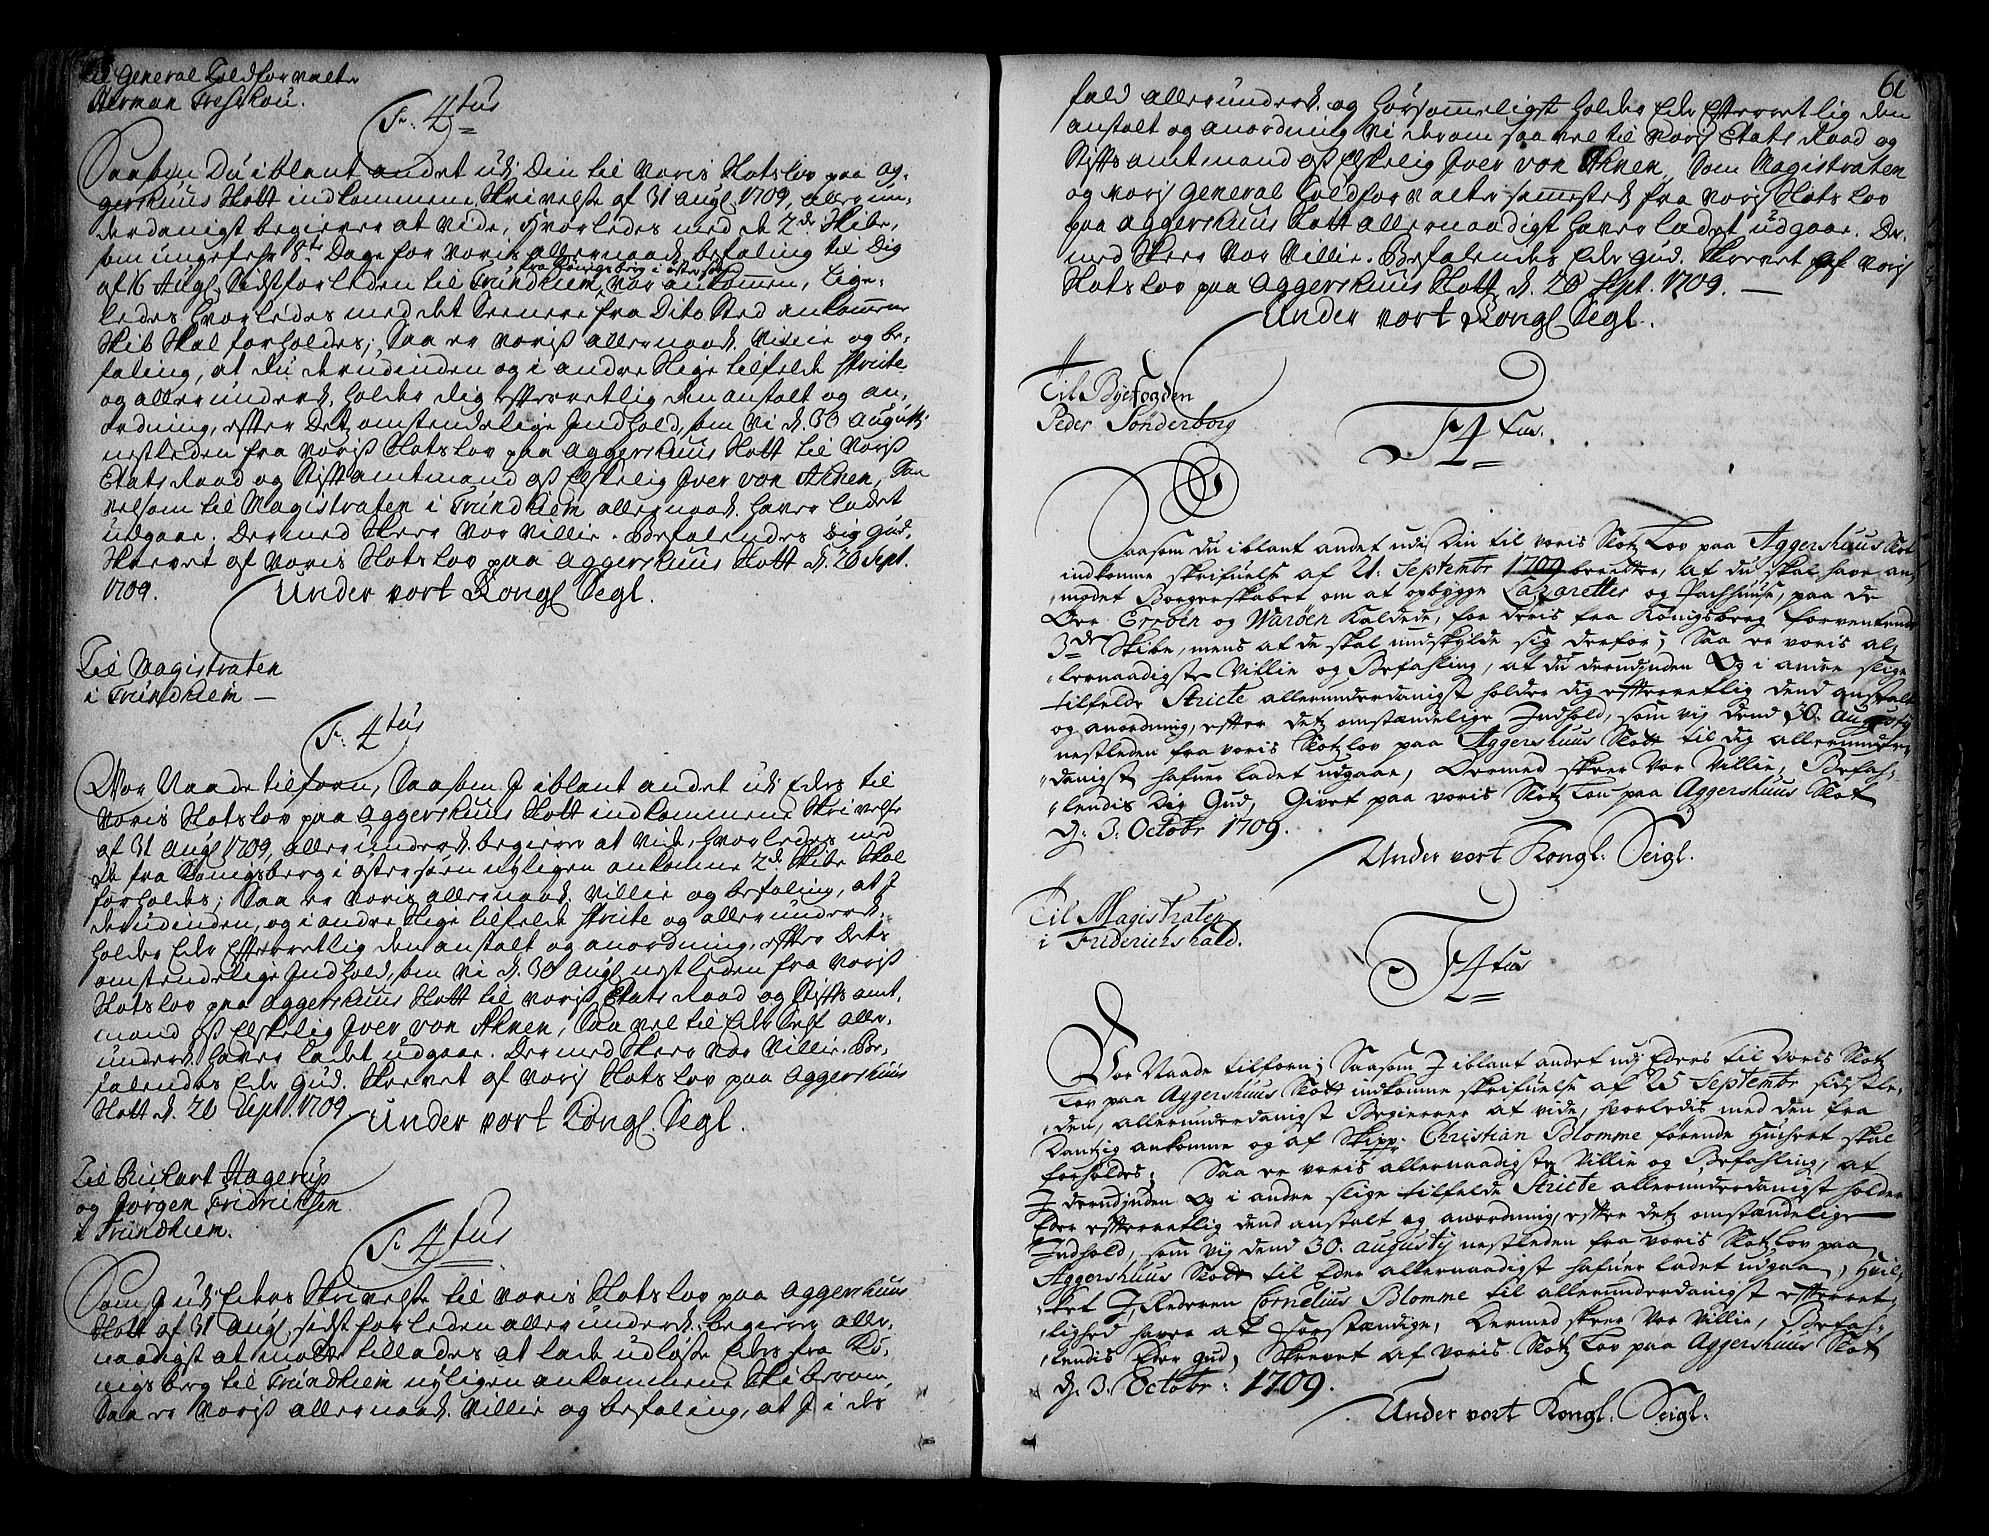 Til General Toldforvalter
Herman Treschou.
Fr: 4tus
Saasom Du iblant andet udi Din til Voris Slotslov paa Ag-
gershuus Slott indkommene Skrivelse af 31 Augl 1709, allerun-
derdanigst begierer at vide, Hvorledes med de 2de Skibe,
som ungefehr 8te Dage for Voris allernaad. befaling til Dig
fra Königsberg i Östersöen
af 16 Augl. Sidstforleden til Trundhiem var ankommen, Lige-
ledes Hvorledes med det Seenere fra Dito Sted ankomne
Skib Skal forholdes; Saa er Voriß allernaad. Villie og be-
faling, at Du derudinden og i andre Slige tilfelde stricte
og allerunderd. holder Dig efterretlig den anstalt og an-
ordning, efter Detz omstendelige Indhold, som Vi d. 30 Augusti
nestleden fra Voriß Slotslov paa Aggershuus Slott til Voriß
Etats Raad og Stiftamtmand oß Elskelig Iver von Ahnen, Saa
velsom til Magistraten i Trundhiem allernaad. haver ladet
udgaae. Dermed Skeer Vor Villie. Befalendes Dig Gud.
Skrevet af Voris Slotslov paa Aggershuus Slott d. 26 Sept.
1709.
Under vort Kongl Segl.
Til Magistraten
i Trundhiem —
Fr: 4tus
Vor Naade tilforn, Saasom I iblant andet udi Eders til
Voris Slotslov paa Aggershuus Slott indkommene Skrivelse
af 31 Augl 1709, allerunderd. begierer at vide, Hvorledes med
De fra Königsberg i östersöen nyligen ankomne 2de Skibe Skal
forholdes; Saa er Voris allernaad. Villie og befaling, at I
derudinden, og i andre Slige tilfelde stricte og allerunderd.
holder Eder Efterretlig den anstalt og anordning, efter Dets
omstendelige Indhold, som Vi d. 30 Augl nestleden fra Voriß
Slotslov paa Aggershuus Slott til Voriß Etats Raad og Stiftsamt-
mand oß Elskelig Iver von Ahnen, Saa vel til Eder Self aller-
underd. haver ladet udgaae. Dermed Skeer Vor Villie. Be-
falendes Eder Gud. Skrevet af Voris Slotslov paa Aggershuus
Slott d. 26 Sept. 1709
Under vort Kongl. Segl.
Til Richart Hagerup
og Jørgen Fridrichsen
i Trundhiem.
Fr 4tus
Som I udi Eders Skrivelse til Voris Slotslov paa Aggershuus
Slott af 31 Augl. sidstforleden allerunderd. begierer aller-
naadigst at motte tillades at lade udlosse Eders fra Kö-
nigsberg til Trundhiem nyligen ankommene Skiberum,
Saa er Voriß allernaad. Villie og befaling, at I i des
61
fald allerunderd. og Hørsommeligst holder Eder Efterretlig den
anstalt og anordning Vi derom saa vel til Vorß Etats Raad og
Stiftsamtmand oß Elskelig Iver von Ahnen, Som Magistraten
og Vorß General Toldforvalter sammested fra Vorß Slotslov
paa Aggershuus Slott allernaadigst haver ladet udgaae. Der-
med Skeer Vor Villie. Befalendes Eder Gud. Skrevet af Vorß
Slotslov paa Aggershuus Slott d. 26 Sept. 1709. —
Under vort Kongl Segl.
Til Byefogden
Peder Sönderborg
F4tus.
Saasom du iblant andet udi Din til voris Slotz Lov paa Aggershuus Slot
indkomne skrifuelse af 21. Septembr 1709 beretter, at du skal have an-
modet Borgerskabet om at opbygge Lazaretter og Pachhuuse, paa de
Öer Erröen og Waröen kaldede, for deris fra Königsberg forventende
3de Skibe, mens at de skal undskylde sig derfor; Saa er voris al-
lernaadigste Villie og Befahling, at du derudjnden Og i andre slige
tilfelde Stricte allerunderdanigst holder dig efterretlig dend anstalt
og anordning, efter detz omstændelige Indhold, som vij dend 30. Augustij
nestleden fra voris Slotzlov paa Aggershuus Slott til dig allerunder-
danigst hafuer ladet udgaae, Dermed skeer Vor Villie, Befah-
lendis Dig Gud, Givet paa voris Slotz Lou paa Aggershuus Slot
d: 3. Octobr 1709.
Under vort Kongl: Seigl.
Til Magistraten
i Friderichshald.
F4tus
Vor Naade tilforn; Saasom I iblant andet udj Eders til Voris Slotz
Lov paa Aggershuus Slott indkomne skrifuelse af 25 Septembr sidstle-
den, allerunderdanigst Begierer at vide, hvorledis med den fra
Dantzig ankomne og af Skipp. Christian Blomme førende Huchert skal
forholdes; Saa er voris allernaadigste Villie og Befahling, at
I derudjnden Og i andre slige tilfelde Stricte allerunderdanigst holder
Eder efterretlig dend anstalt og anordning, efter detz omstændelige
Indhold, som vij dend 30. Augustij nestleden fra voris Slotz Lov paa
Aggershuus Slott til Eder allernaadigst hafuer ladet udgaae, Hvil-
cket I Rederen Cornelius Blomme til allerunderdanigst efterret-
lighed haver at forstændige, Dermed skeer Vor Villie, Befah-
lendis Eder Gud, Skrevet af Voris Slotz Lov paa Aggershuus Slot
d. 3. Octobr: 1709.
Under vort Kongl: Seigl: